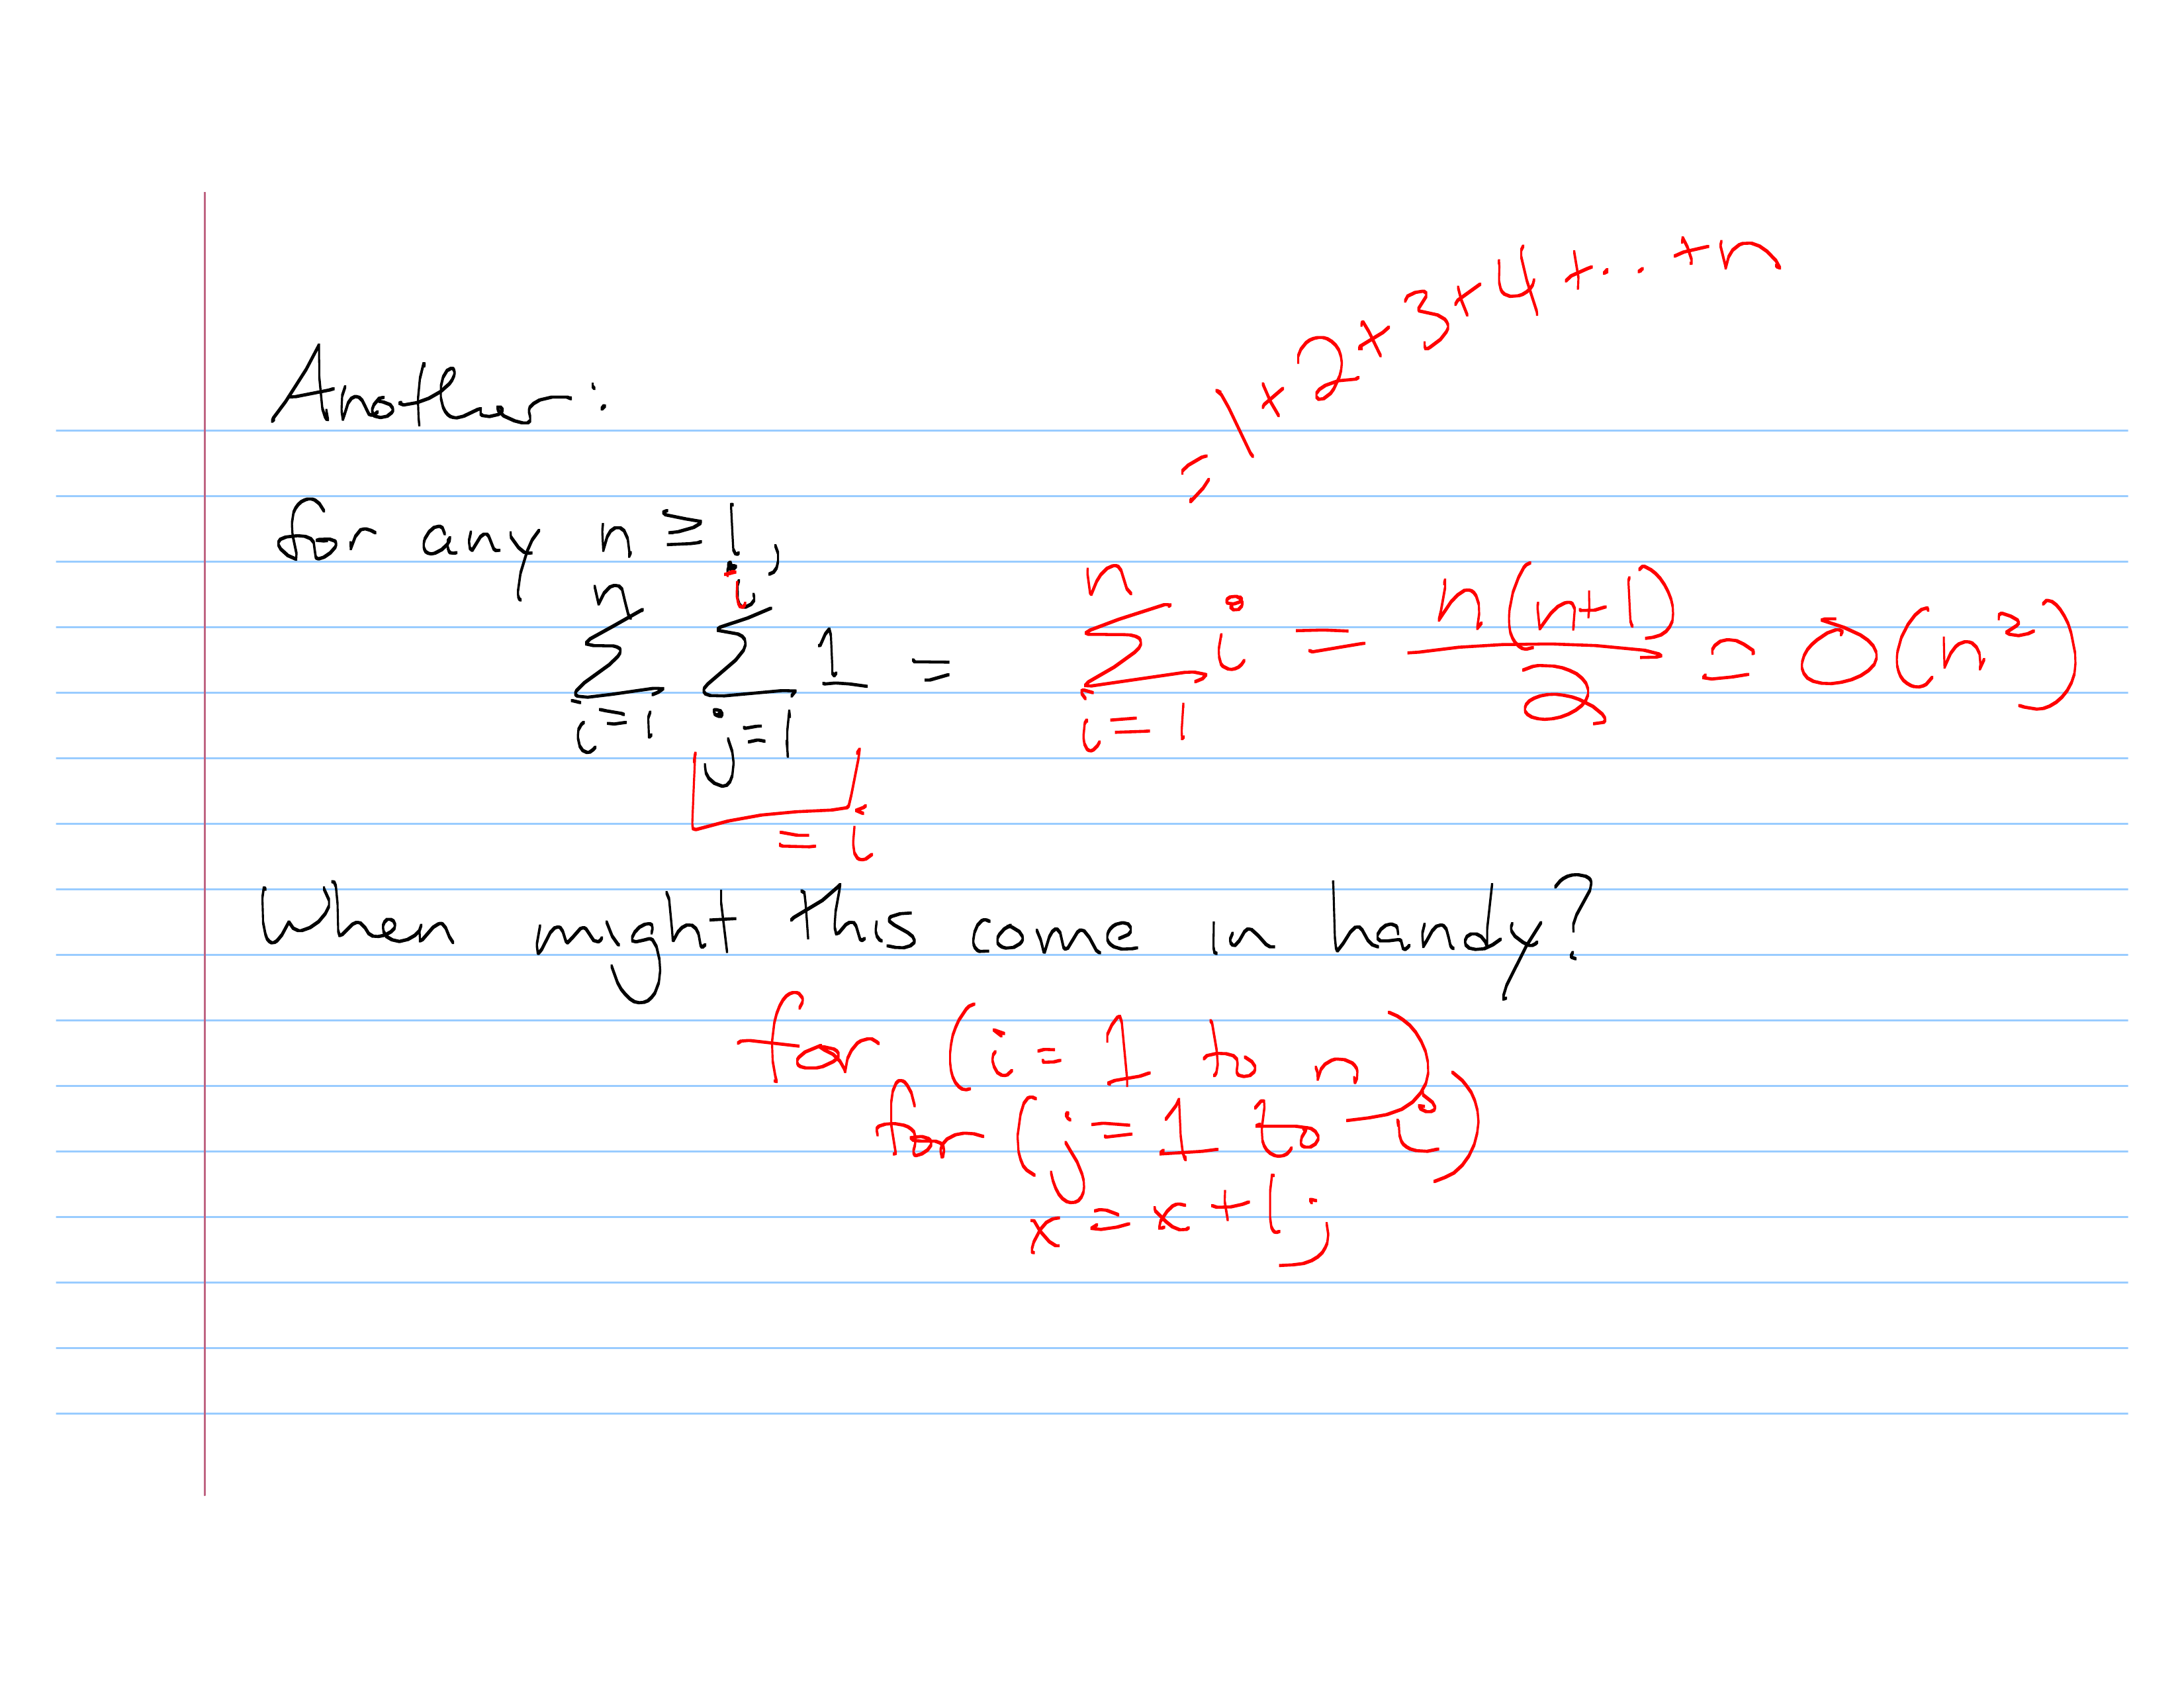 Another:
= 1 + 2 + 3 + 4 + ... + n
for any n ≥ 1,
∑_{i=1}^{n} ∑_{j=1}^{i} 1 = ∑_{i=1}^{n} i = n(n+1)/2 = O(n²)
= i
When might this come in handy?
for (i = 1 to n)
for (j = 1 to i)
x = x + 1;